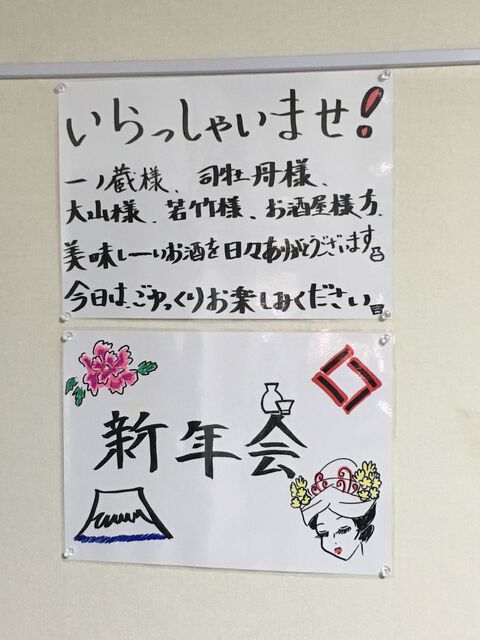 いらっしゃいませ!
一ノ蔵様、司牡丹様、
大山様、若竹様、お酒屋様方、
美味しーいお酒を日々ありがとうございます
今日は、ごゆっくりお楽しみください
新年会